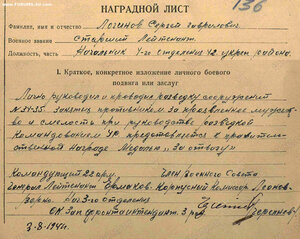 136
НАГРАДНОЙ ЛИСТ
Фамилия, имя и отчество Логинов Сергей Гаврилович
Военное звание Старший Лейтенант
Должность, часть Начальник 4-го отделения 42 укреп. района.
1. Краткое, конкретное изложение личного боевого
подвига или заслуг
Лично руководил и проводил разведку сооружений
занятых противником. За проявленное мужест-
во и смелость при руководстве разведкой
Командованием УР представляется к правитель-
ственной награде Медалью "За отвагу"
Командующий 22 арм. Член Военного Совета
Генерал Лейтенант Ермаков. Корпусный Комиссар Леонов
Верно: Нач 3-го отделения
ОК Зап. фронта интендант 3 р.
3-8-1941г.